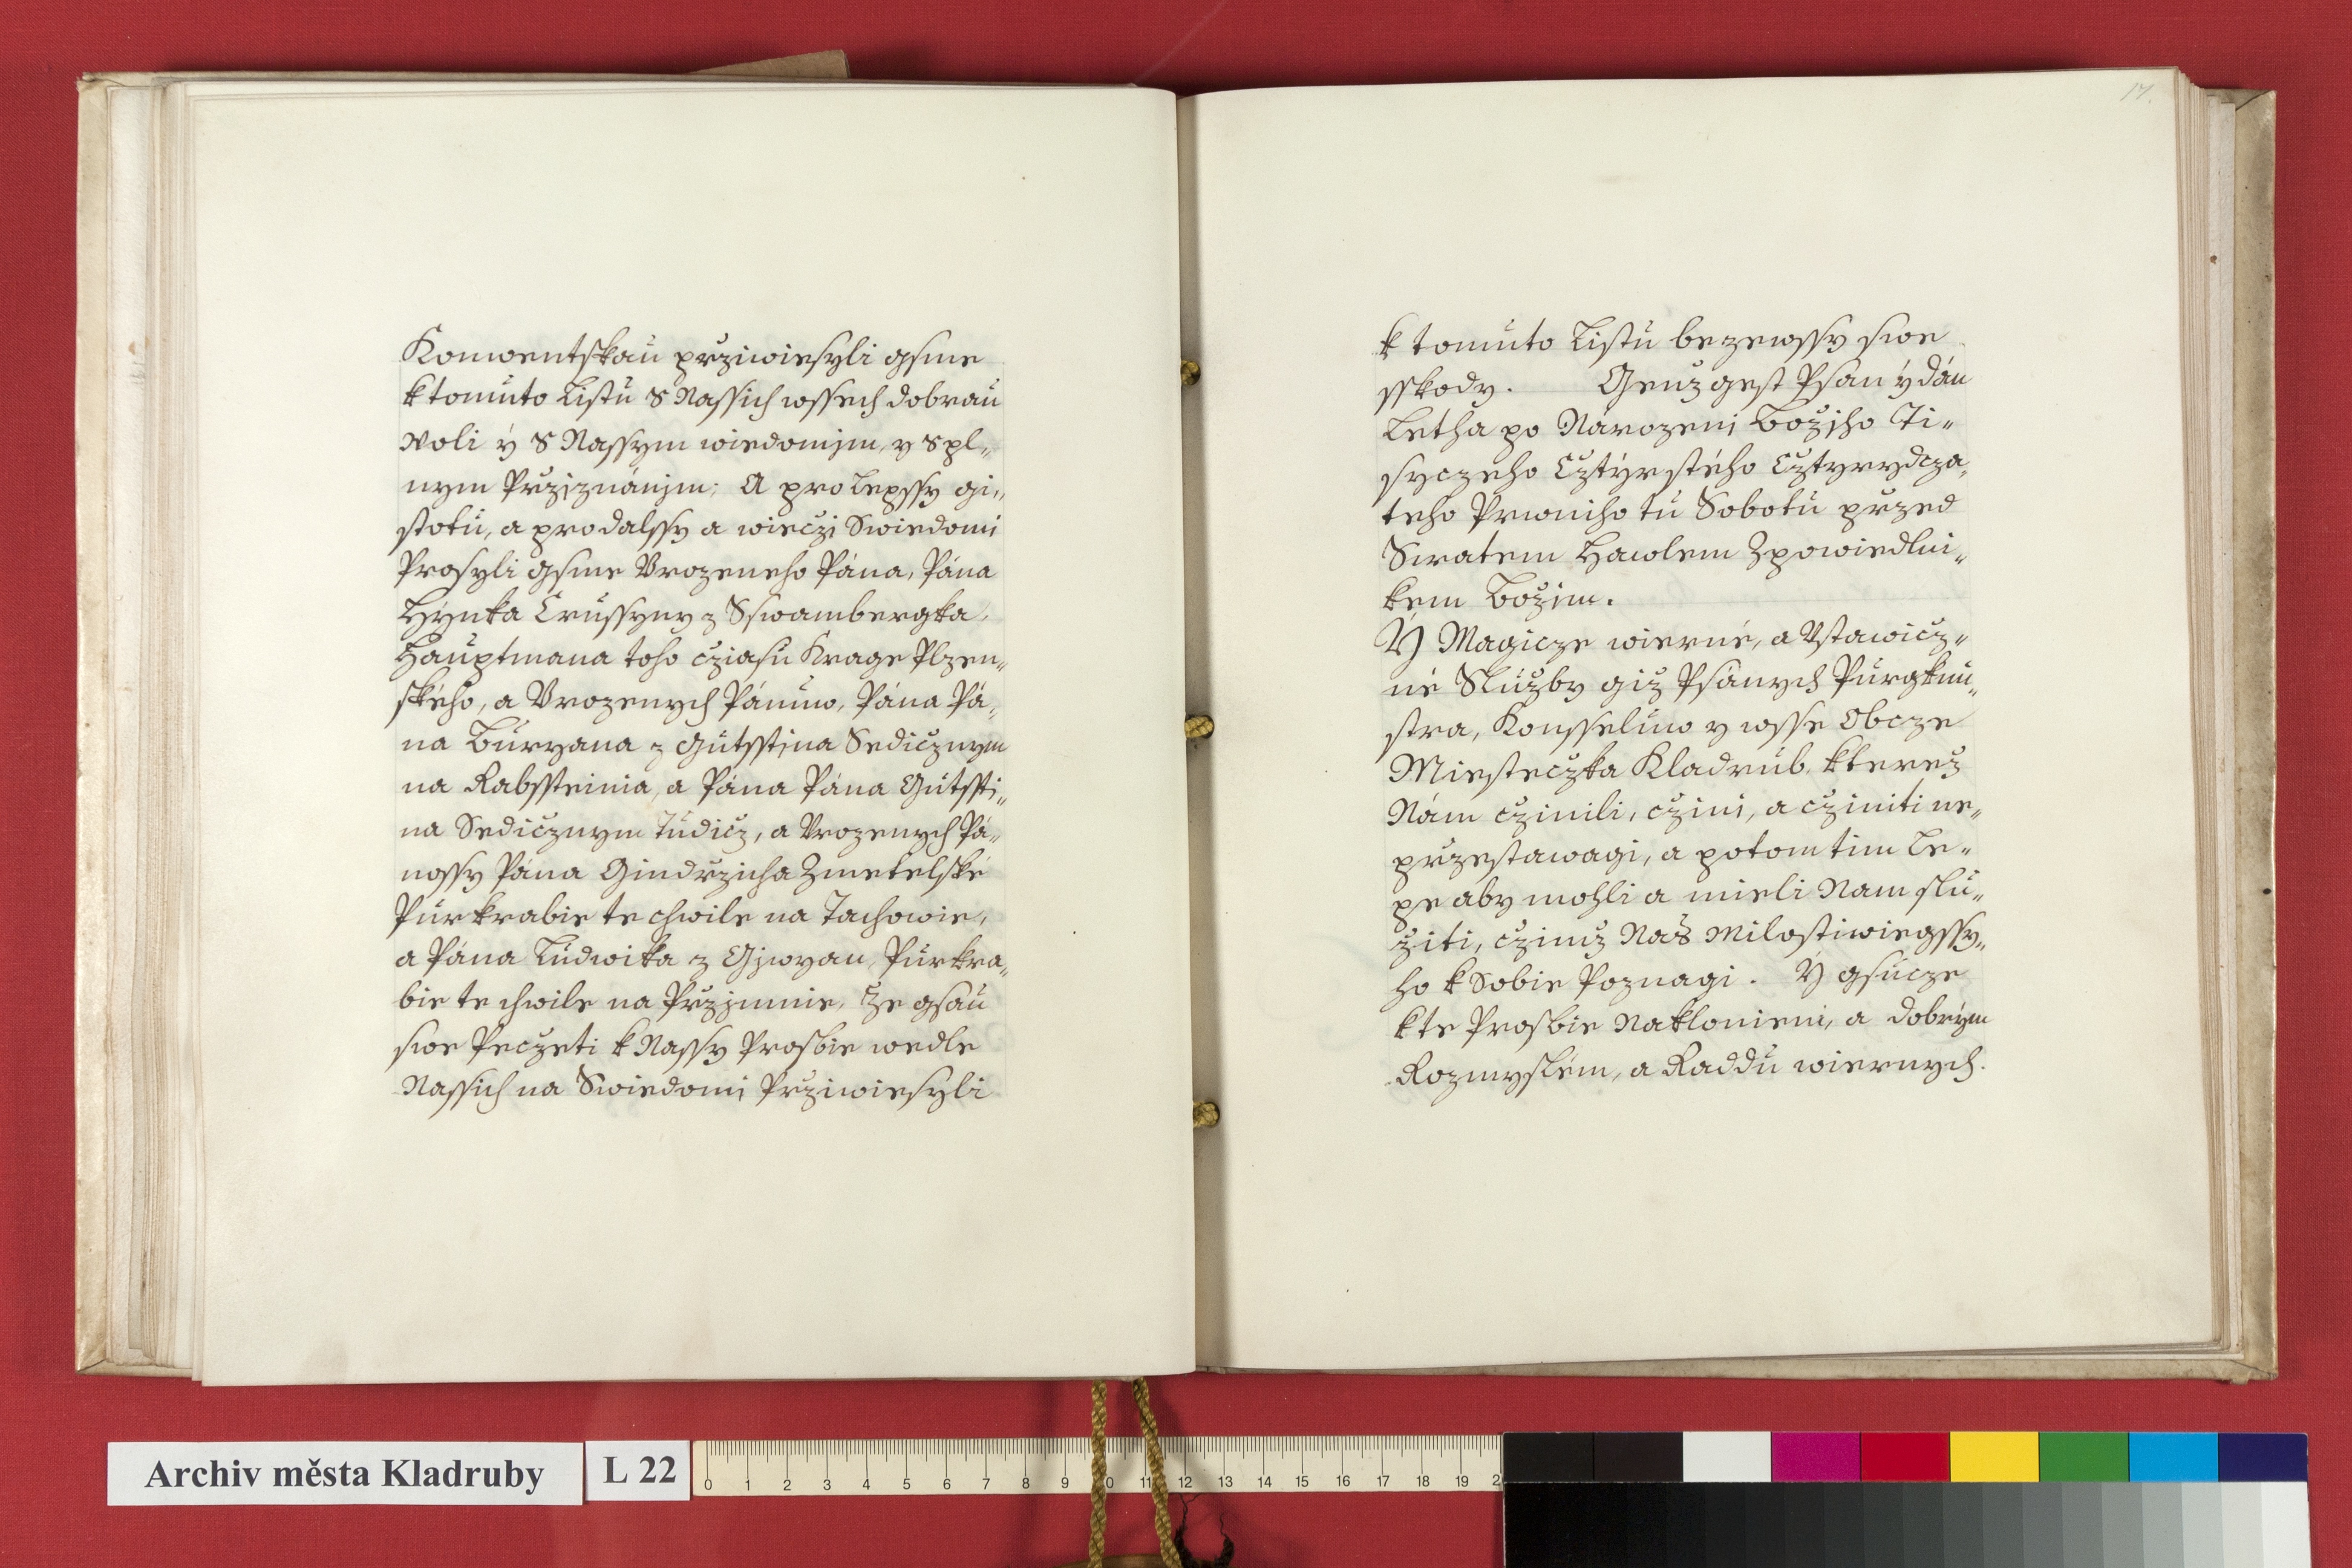 Konwentskau przjiwiesyli gsme
k tomuto Listu s Nassich wssech dobrau
Woli ý s Nassym wiedomjm, y s pl„
nym Przjznánjm; A pro lepssy gi„
stotu, a pro dalssy a wieczi Swiedomi
Prosyli gsme Vrozeneho Pána, Pána
Hýnka Crussyny z Sswambergka,
Hauptmana toho cziasu Krage Plzen„
ského, a Vrozenych Pánuw, Pána Pá„
na Buryana z Gutsstina Sedicznym
na Rabssteinia, a Pána Pána Gutssti„
na Sedicznym Tudicz, a Vrozenych Pá„
nossy Pána Gindrzicha Zmetelské
Purkrabie te chwile na Tachowie,
a Pána Ludwika z Gjwyan, Purkra„
bie te chwile na Przjmnie, že gsau
swe Peczeti k Nassy Prosbie wedle
Nassich na Swiedomj Przjiwiesýli
17.
k tomuto Listu bezewssy swe
sskody. Genz gest Psan ý dán
Letha po Národzeni Božjho Ti„
syczeho Cztýrstého Cztyrydcza„
teho Prwniho tu Sobotu przed
Swatem Hawlem Zpowiedlni„
kem Božim.
Ý Magicze wierné, a Vstawicz„
né Služby giž Psaných Purgkmi„
stra, Konsseluw y wsse Obcze
Miesteczka Kladrub, kterež
Nám czinili, czini, a cziniti ne„
przestawagi, a potom tim le„
pe aby mohli a mieli Nam slu„
žiti, czimž Nas Milostiwiegssy„
ho k Sobie Poznagi. Ý gsúcze
k te Prosbie Naklonieni, a dobrým
Rozmyslém, a Raddu wiernych.
Archiv města Kladruby
L 22
0 1 2 3 4 5 6 7 8 9 0 11 12 13 14 15 16 17 18 19 2